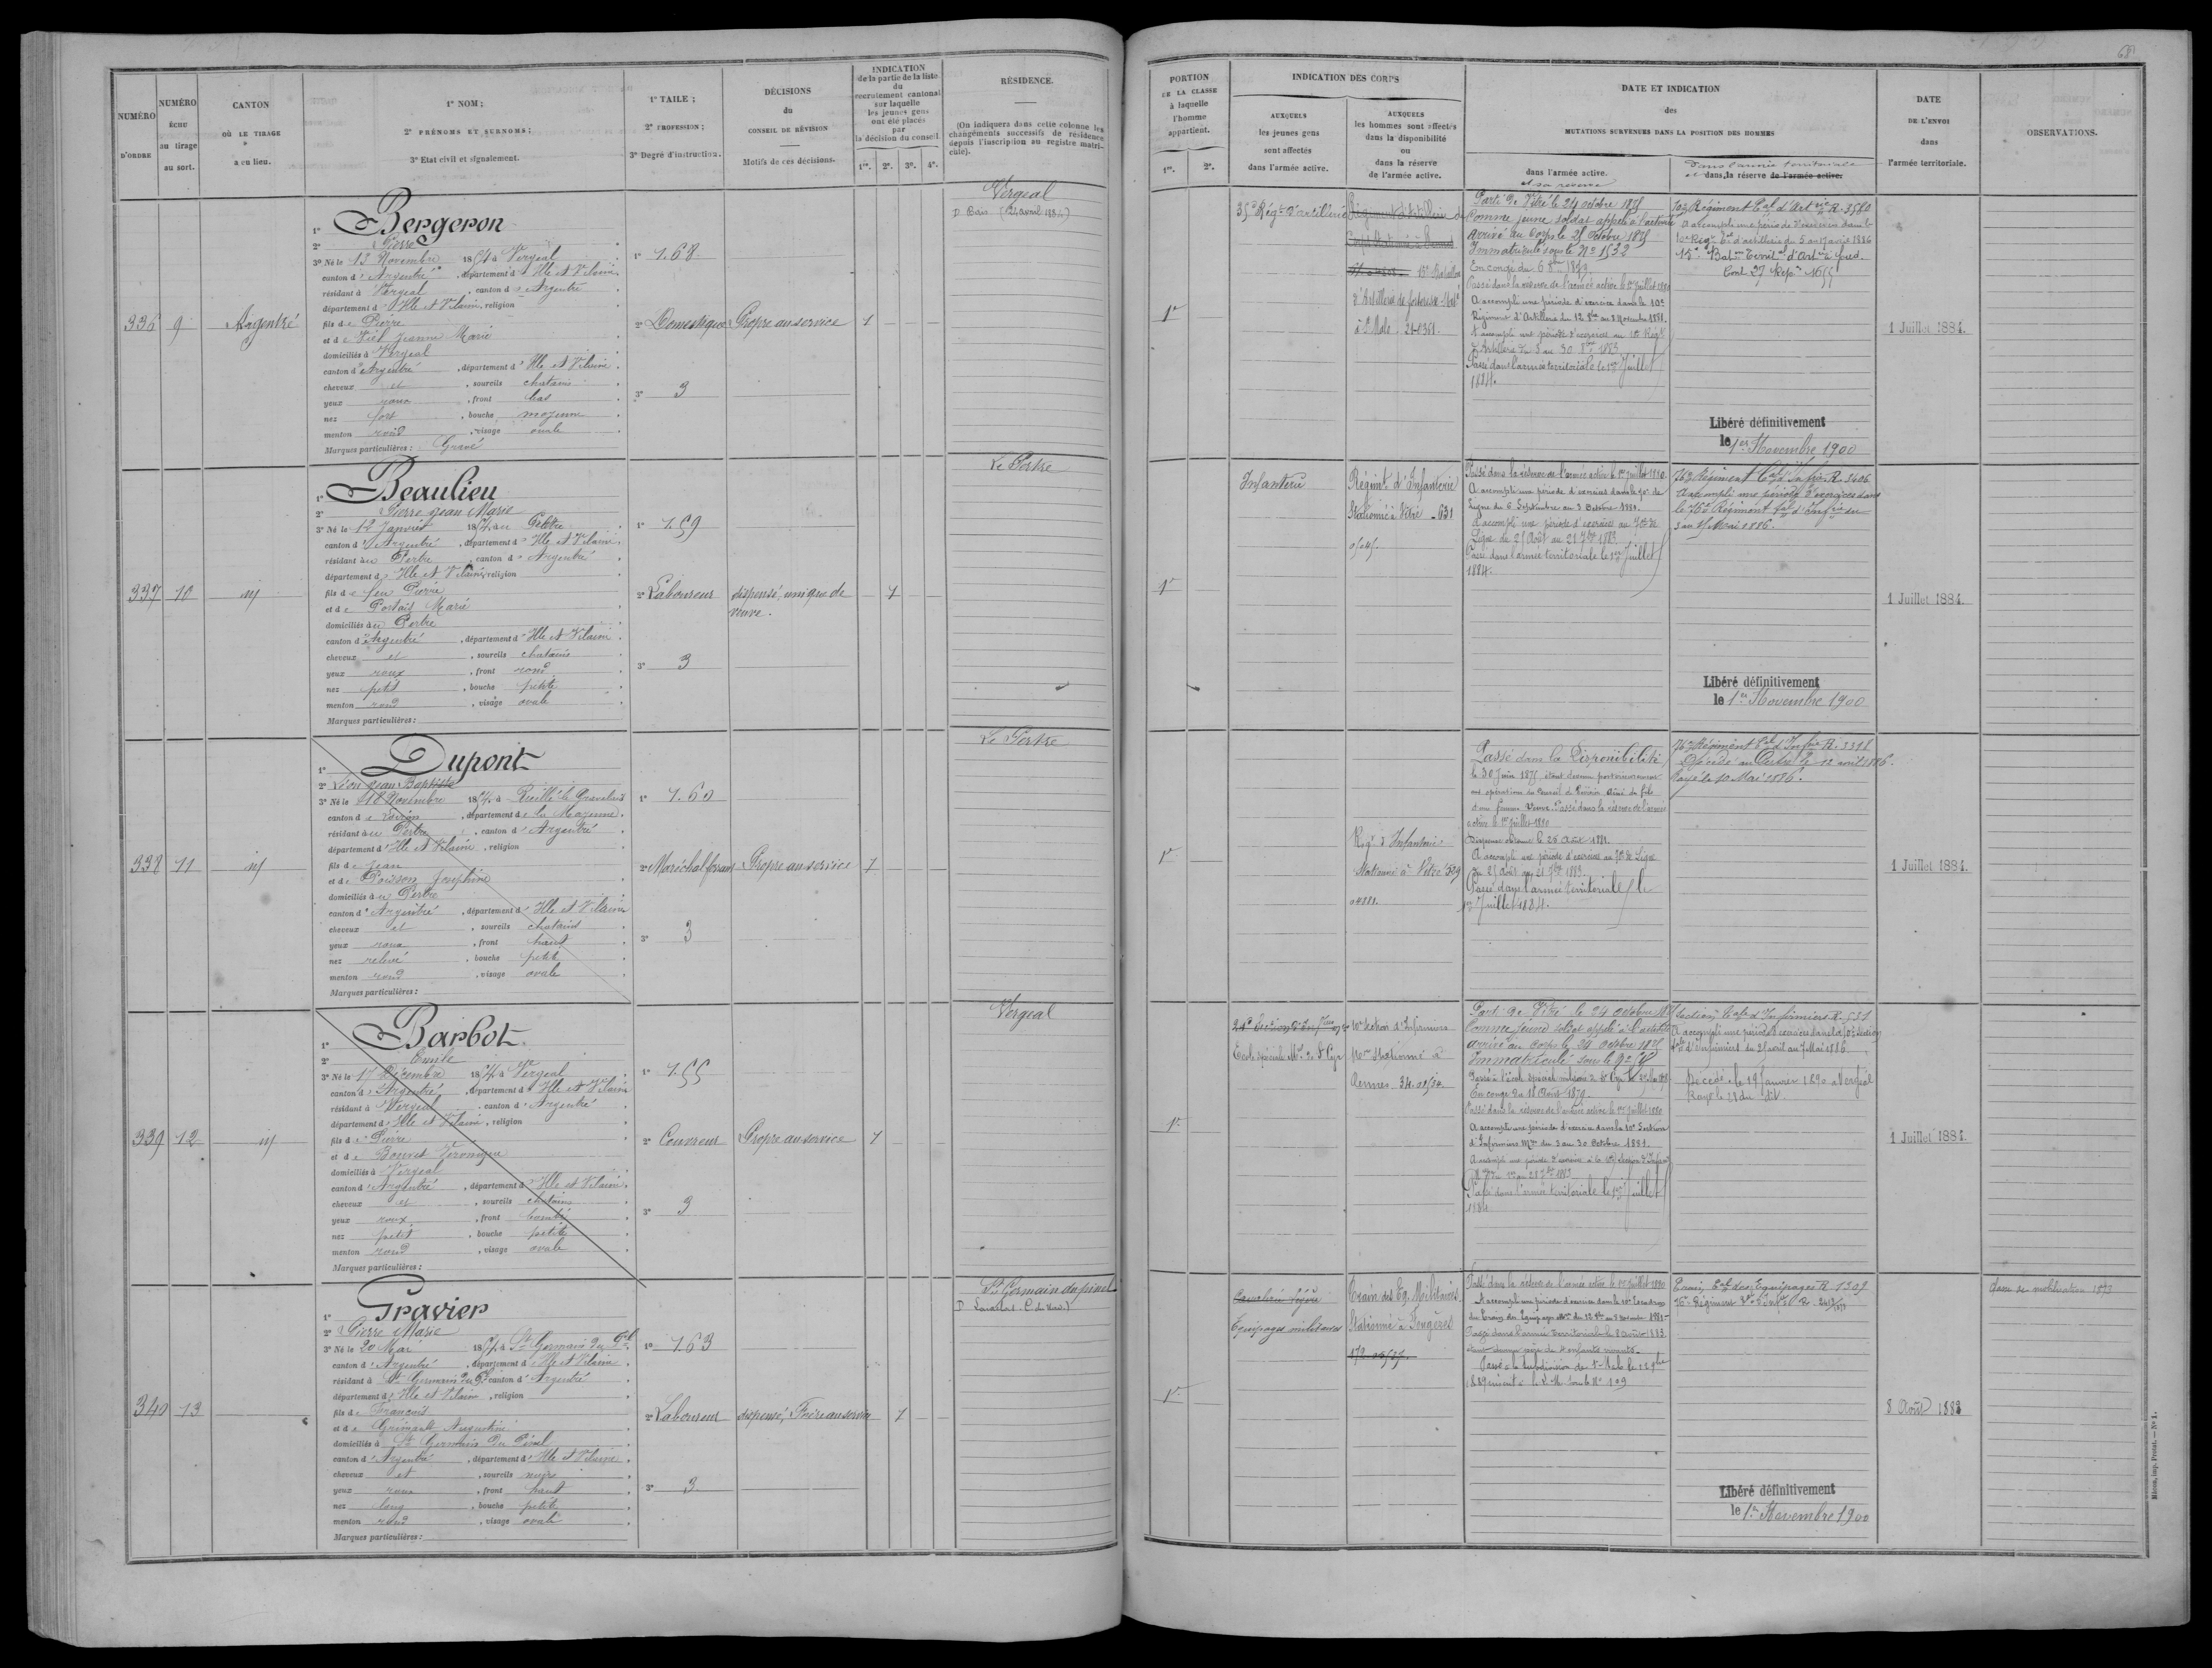 68
NUMÉRO
D'ORDRE
NUMÉRO
ÉCHU
au tirage
au sort.
CANTON
OÙ LE TIRAGE
a eu lieu.
1° NOM;
2° PRÉNOMS ET SURNOMS;
3° Etat civil et signalement.
1° TAILE;
2° PROFESSION;
3° Degré d'instruction.
DÉCISIONS
du
CONSEIL DE RÉVISION
Motifs de ces décisions.
INDICATION
de la partie de la liste
du
recrutement cantonal
sur laquelle
les jeunes gens
ont été placés
par
la décision du conseil
1re. 2e. 3e. 4e.
RÉSIDENCE.
(On indiquera dans cette colonne les
changements successifs de résidence
depuis l'inscription au registre matri-
cule).
PORTION
DE LA CLASSE
à laquelle
l'homme
appartient.
1re. 2e.
INDICATION DES CORPS
AUXQUELS
les jeunes gens
sont affectés
dans l'armée active.
AUXQUELS
les hommes sont affectés
dans la disponibilité
ou
dans la réserve
de l'armée active.
DATE ET INDICATION
des
MUTATIONS SURVENUES DANS LA POSITION DES HOMMES
dans l'armée active.
et sa réserve
Dans l'armée territoriale
et dans la réserve de l'armée active.
DATE
DE L'ENVOI
dans
l'armée territoriale.
OBSERVATIONS.
336 9 Argentré
1° Bergeron
2° Pierre
3° Né le 13 Novembre 1854 à Vergeal
canton d'Argentré, département d'Ille et Vilaine
résidant à Vergeal, canton d'Argentré
département d'Ille et Vilaine, religion
fils de Pierre
et de Jeanne Marie
domiciliés à Vergeal
canton d'Argentré, département d'Ille et Vilaine
cheveux et, sourcils chatains
yeux roux, front bas
nez fort, bouche moyenne
menton rond, visage ovale
Marques particulières: Gravé
1° 1.68
2° Domestique
3° 3
Propre au service
1
Vergeal
D Bais (24 avril 1884)
1re
35e Régt d'artillerie
Régiment d'Artillerie
15e Bataillon
d'Artillerie de forteresse
à St Malo
Parti de Vitré le 24 octobre 1875
Comme jeune soldat appelé à l'activité
Arrivé au Corps le 25 octobre 1875
Immatriculé sous le No 1532
En congé du 6 8bre 1879
Passé dans la réserve de l'armée active le 1er Juillet 1880
A accompli une période d'exercice dans le 10e
Régiment d'Artillerie du 12 8bre au 8 Novembre 1881.
A accompli une période d'exercices au 10e Régt
d'Artillerie du 3 au 30 8bre 1883
Passé dans l'armée territoriale le 1er Juillet
1884.
10e Régiment tal d'Artie R. 3580
A accompli une période d'exercices dans le
10e Régt tal d'artillerie du 5 au 17 avril 1886
15e Baton Territal d'Artie à pied.
Libéré définitivement
le 1er Novembre 1900
1 Juillet 1884.
337 10 id
1° Beaulieu
2° Pierre Jean Marie
3° Né le 12 Janvier 1854 au Pertre
canton d'Argentré, département d'Ille et Vilaine
résidant au Pertre, canton d'Argentré
département d'Ille et Vilaine, religion
fils de feu Pierre
et de Portais Marie
domiciliés au Pertre
canton d'Argentré, département d'Ille et Vilaine
cheveux et, sourcils chatains
yeux roux, front rond
nez petit, bouche petite
menton rond, visage ovale
Marques particulières:
1° 1.59
2° Laboureur
3° 3
dispensé, unique de
veuve.
1
Le Pertre
1re
Infanterie
Régimt d'Infanterie
Stationné à Vitré 631
Passé dans la réserve de l'armée active le 1er Juillet 1880.
A accompli une période d'exercices dans le 70e de
Ligne du 6 Septembre au 3 Octobre 1881.
A accompli une période d'exercices au 70e de
Ligne du 25 Août au 21 7bre 1883.
Passé dans l'armée territoriale le 1er Juillet
1884.
76e Régiment tal d'Infie R. 3406
A accompli une période d'exercices dans
le 76e Régiment tal d'Infie du
3 au 15 Mai 1886.
Libéré définitivement
le 1er Novembre 1900
1 Juillet 1884.
338 11 id
1° Dupont
2° Léon Jean Baptiste
3° Né le 18 Novembre 1854 à Ruillé le Gravelais
canton de Loiron, département de la Mayenne
résidant au Pertre, canton d'Argentré
département d'Ille et Vilaine, religion
fils de Jean
et de Poisson Joséphine
domiciliés au Pertre
canton d'Argentré, département d'Ille et Vilaine
cheveux et, sourcils chatains
yeux roux, front haut
nez relevé, bouche petite
menton rond, visage ovale
Marques particulières:
1° 1.60
2° Maréchal ferrant
3° 3
Propre au service
1
Le Pertre
1re
Régt d'Infanterie
Stationné à Vitré 529
Passé dans la Disponibilité
le 30 Juin 1875, étant devenu postérieurement
aux opérations du Conseil de Révision aîné de fils
d'une femme veuve. Passé dans la réserve de l'armée
active le 1er Juillet 1880
A accompli une période d'exercices au 70e de Ligne
du 25 Août au 21 7bre 1883.
Passé dans l'armée territoriale le
1er Juillet 1884.
76e Régiment tal d'Infie R. 3316
Décédé au Pertre le 12 avril 1886.
Rayé le 10 Mai 1886.
1 Juillet 1884.
339 12 id
1° Barbot
2° Emile
3° Né le 17 Décembre 1854 à Vergeal
canton d'Argentré, département d'Ille et Vilaine
résidant à Vergeal, canton d'Argentré
département d'Ille et Vilaine, religion
fils de Pierre
et de Bouvet Véronique
domiciliés à Vergeal
canton d'Argentré, département d'Ille et Vilaine
cheveux et, sourcils chatains
yeux roux, front bombé
nez petit, bouche petite
menton rond, visage ovale
Marques particulières:
1° 1.55
2° Couvreur
3° 3
Propre au service
1
Vergeal
1re
Ecole spéciale Mre de St Cyr
10e Section d'Infirmiers
stationné à
Rennes
Parti de Vitré le 24 octobre 1875
Comme jeune soldat appelé à l'activité
arrivé au corps le 24 octobre 1875
Immatriculé sous le
En congé du
Passé dans la réserve de l'armée active le 1er Juillet 1880
A accompli une période d'exercice dans la 10e Section
d'Infirmiers Mres du 3 au 30 Octobre 1881.
Passé dans l'armée territoriale le 1er Juillet
1884
Section tale d'Infirmiers R. 531
A accompli une période d'exercices dans la 10e Section
tale d'Infirmiers du 25 avril au 7 Mai 1886.
Décédé le 19 Janvier 1890 à Vergeal
Rayé le 28 du dit.
1 Juillet 1884.
340 13
1° Gravier
2° Pierre Marie
3° Né le 20 Mai 1854 à St Germain du Pel
canton d'Argentré, département d'Ille et Vilaine
résidant à St Germain du Pel canton d'Argentré
département d'Ille et Vilaine, religion
fils de François
et de Grimault Augustine
domiciliés à St Germain du Pinel
canton d'Argentré, département d'Ille et Vilaine
cheveux et, sourcils noirs
yeux roux, front haut
nez long, bouche petite
menton rond, visage ovale
Marques particulières:
1° 1.63
2° Laboureur
3° 3
dispensé, Frère au service
1
St Germain du pinel
1re
Cavalerie légère
Equipages militaires
Train des Eq. Militaires.
Stationné à Fougères
Passé dans la réserve de l'armée active le 1er Juillet 1880
A accompli une période d'exercice dans le 10e Escadron
du Train des Equipages Mres du 12 8bre au 8 Novembre 1881.
Passé dans l'armée territoriale le 8 Août 1883
étant devenu père de 4 enfants vivants.
Passé à la subdivision de St Malo
Train tal des Equipages R. 1309
76e Régiment tal d'Infie
Libéré définitivement
le 1er Novembre 1900
8 Août 1883
Mâcon, imp. Protat. — N° 1.